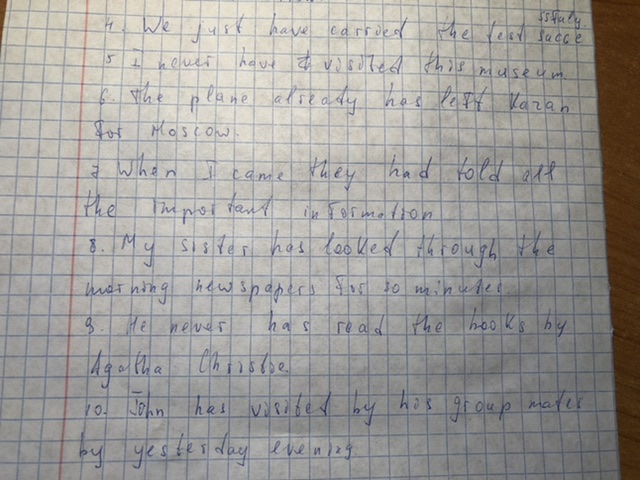 ssfuly.
4. We just have carried the test succe
5. I never have visited this museum
6. The plane already has left Kazan
for Moscow.
7 When I came they had told all
the important information
8. My sister has looked through the
morning newspapers for 30 minutes.
9. He never has read the books by
Agatha Christie.
10. John has visited by his group mates
by yesterday evening.